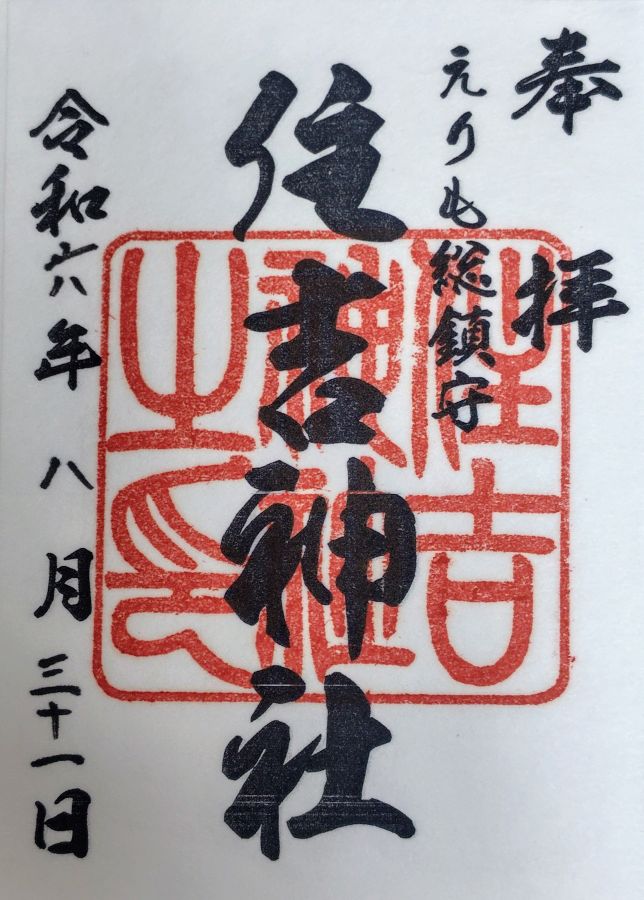 奉拝
えりも総鎮守
住吉神社
令和六年八月三十一日
住吉神社之印